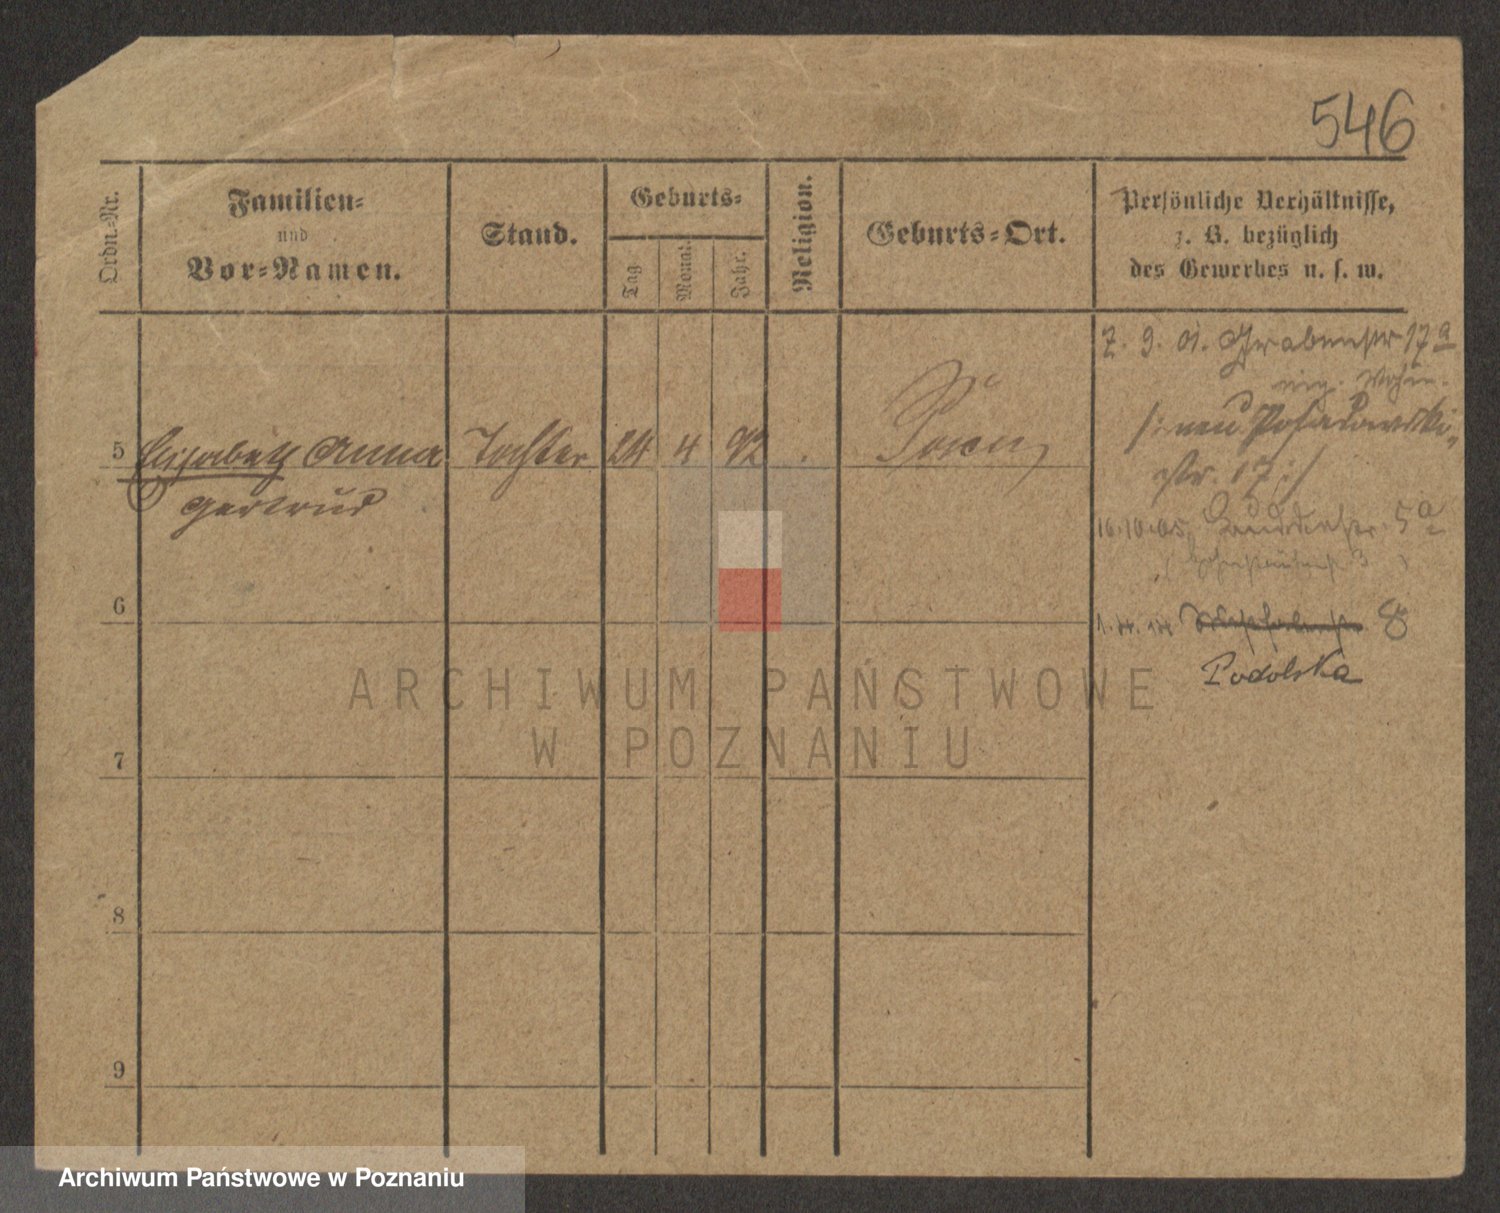 546
Ordn.-Nr.
Familien-
und
Vor-Namen.
Stand.
Geburts-
Tag
Monat.
Jahr.
Religion.
Geburts-Ort.
Persönliche Verhältnisse,
z. B. bezüglich
des Gewerbes u. s. w.
7. 9. 01. Grabenstr 17a
5 Elisabeth Anna Tochter 24 4 92 Posen
Gertrud
neu Posadowski
str. 17
16.10.05. 5a
3
6
8
Podolska
ARCHIWUM PAŃSTWOWE
W POZNANIU
7
8
9
Archiwum Państwowe w Poznaniu